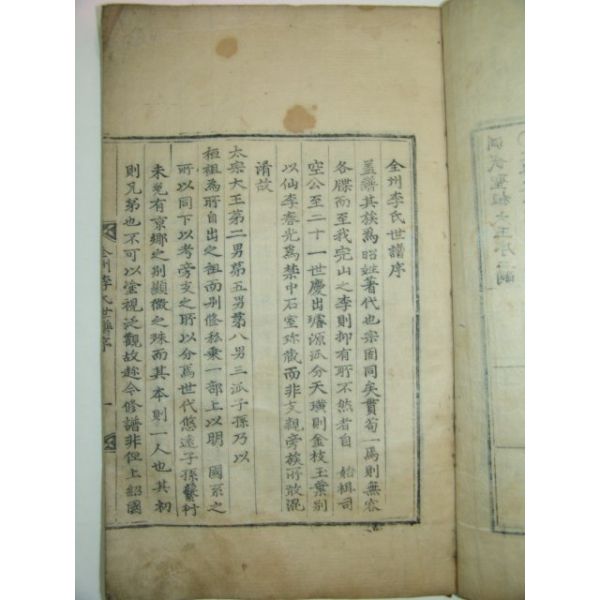 全州李氏世譜序
蓋譜其族爲昭姓著代也宗固同矣貫苟一焉則無容
各牒而至我完山之李則抑有所不然者自 始祖司
空公至二十一世慶出璿源派分天璜則金枝玉葉別
以仙李春光爲禁中石室珎藏而非支親旁族所敢混
淆故
太宗大王第二男第五男第八男三派子孫乃以
桓祖爲所自出之祖而刋修私乘一部上以明 國系之
所以同下以考旁支之所以分焉世代悠遠子孫
未免有京鄕之別顯微之殊而其本則一人也其初
則兄弟也不可以 視泛觀故玆今修譜非但上紹國
全州李氏世譜序
一